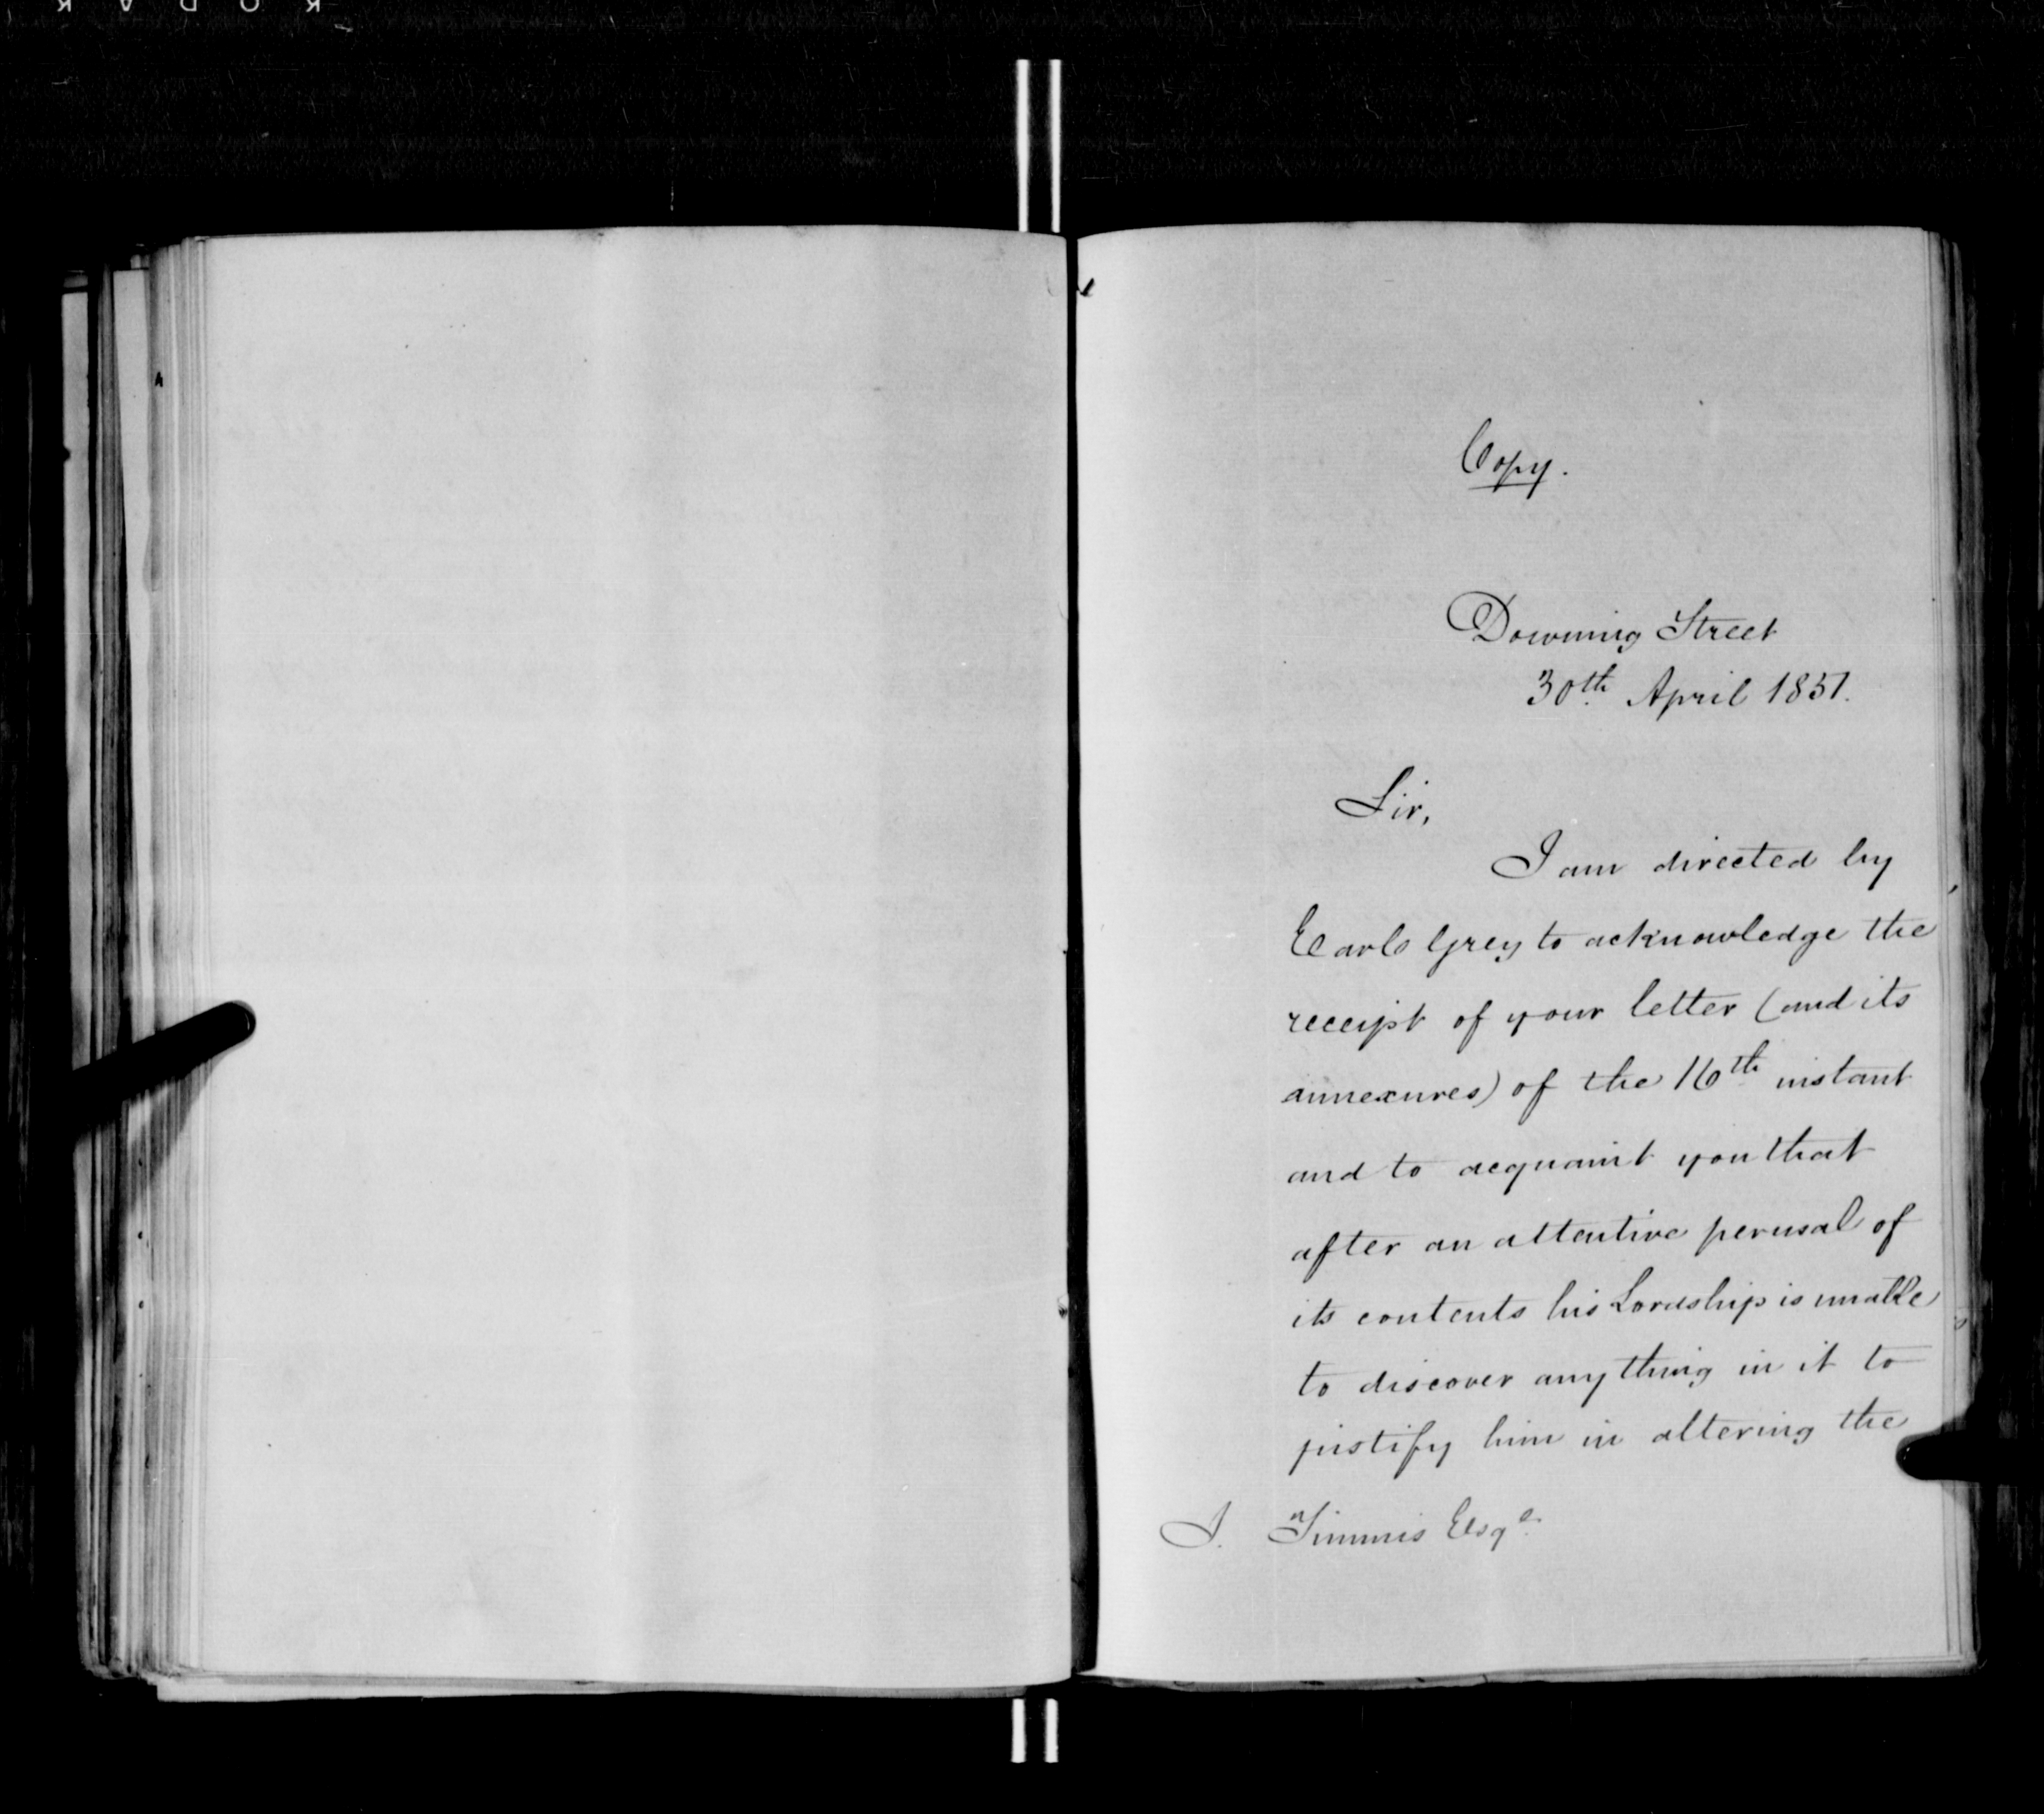 Copy.
Downing Street
30th April 1851.
Sir,
I am directed by
Earl Grey to acknowledge the
receipt of your letter (and its
annexures) of the 16th instant
and to acquaint you that
after an attentive perusal of
its contents his Lordship is unable
to discover any thing in it to
justify him in altering the
J. Timmis Esqe.